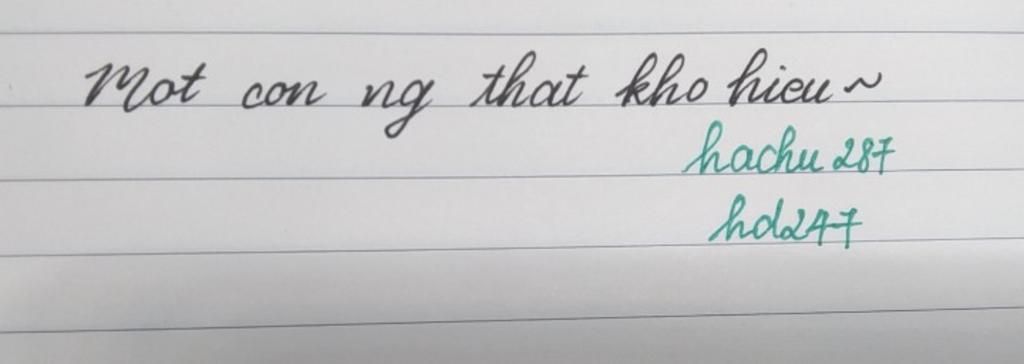 Mot con ng that kho hieu~
hachu 287
hd247